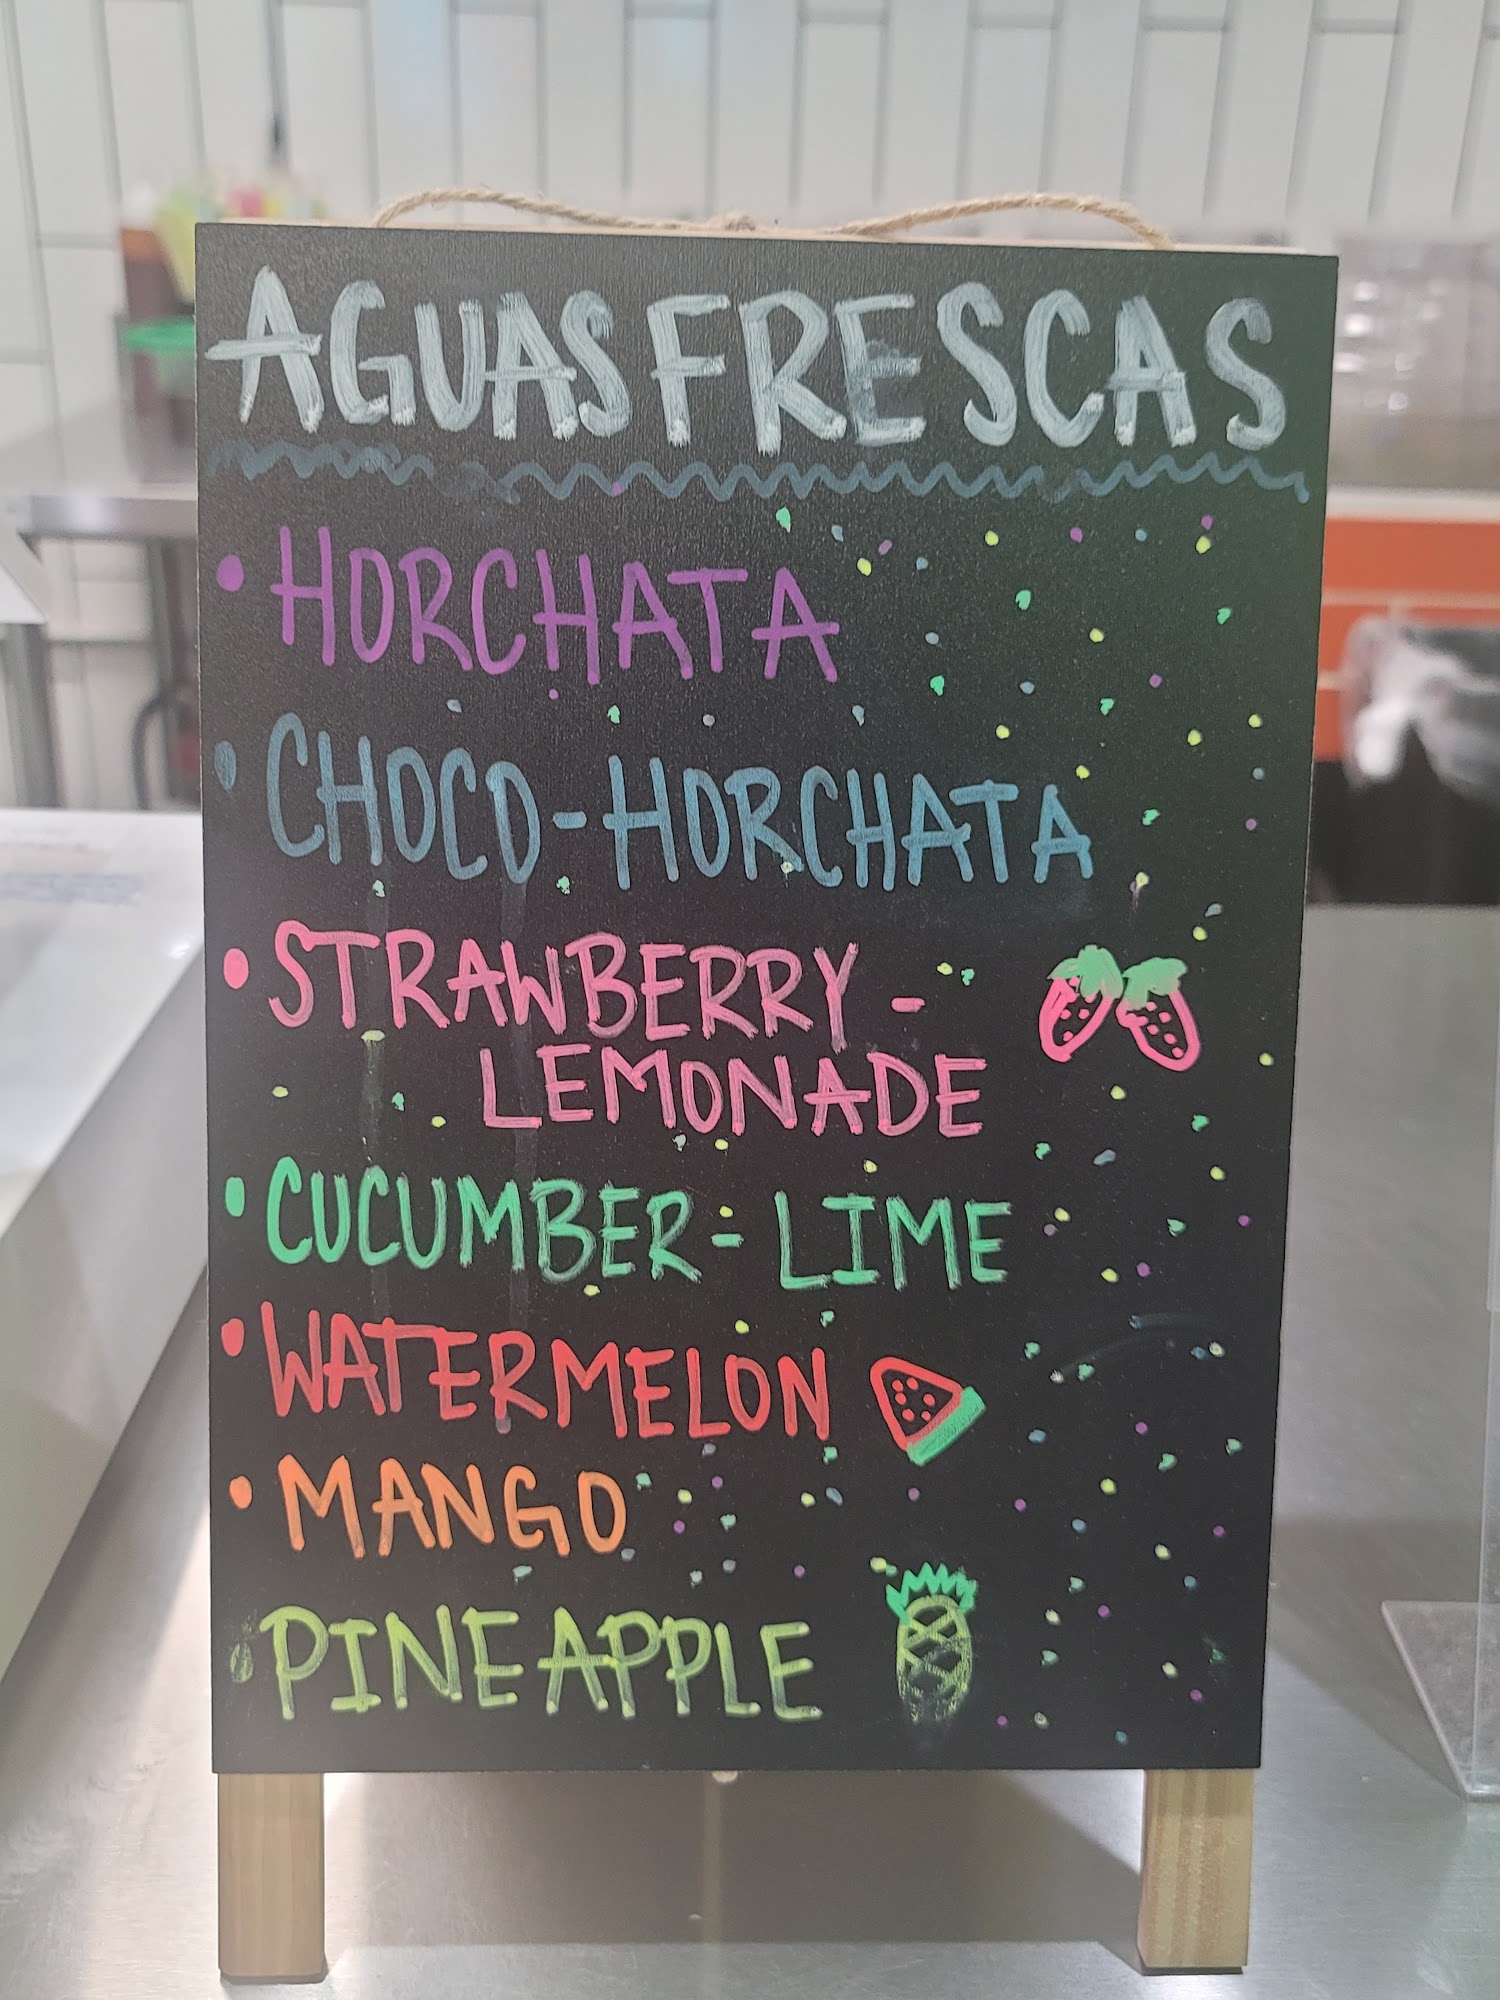 AGUAS FRESCAS
• HORCHATA
• CHOCO-HORCHATA
• STRAWBERRY-
LEMONADE
• CUCUMBER-LIME
• WATERMELON
• MANGO
• PINEAPPLE